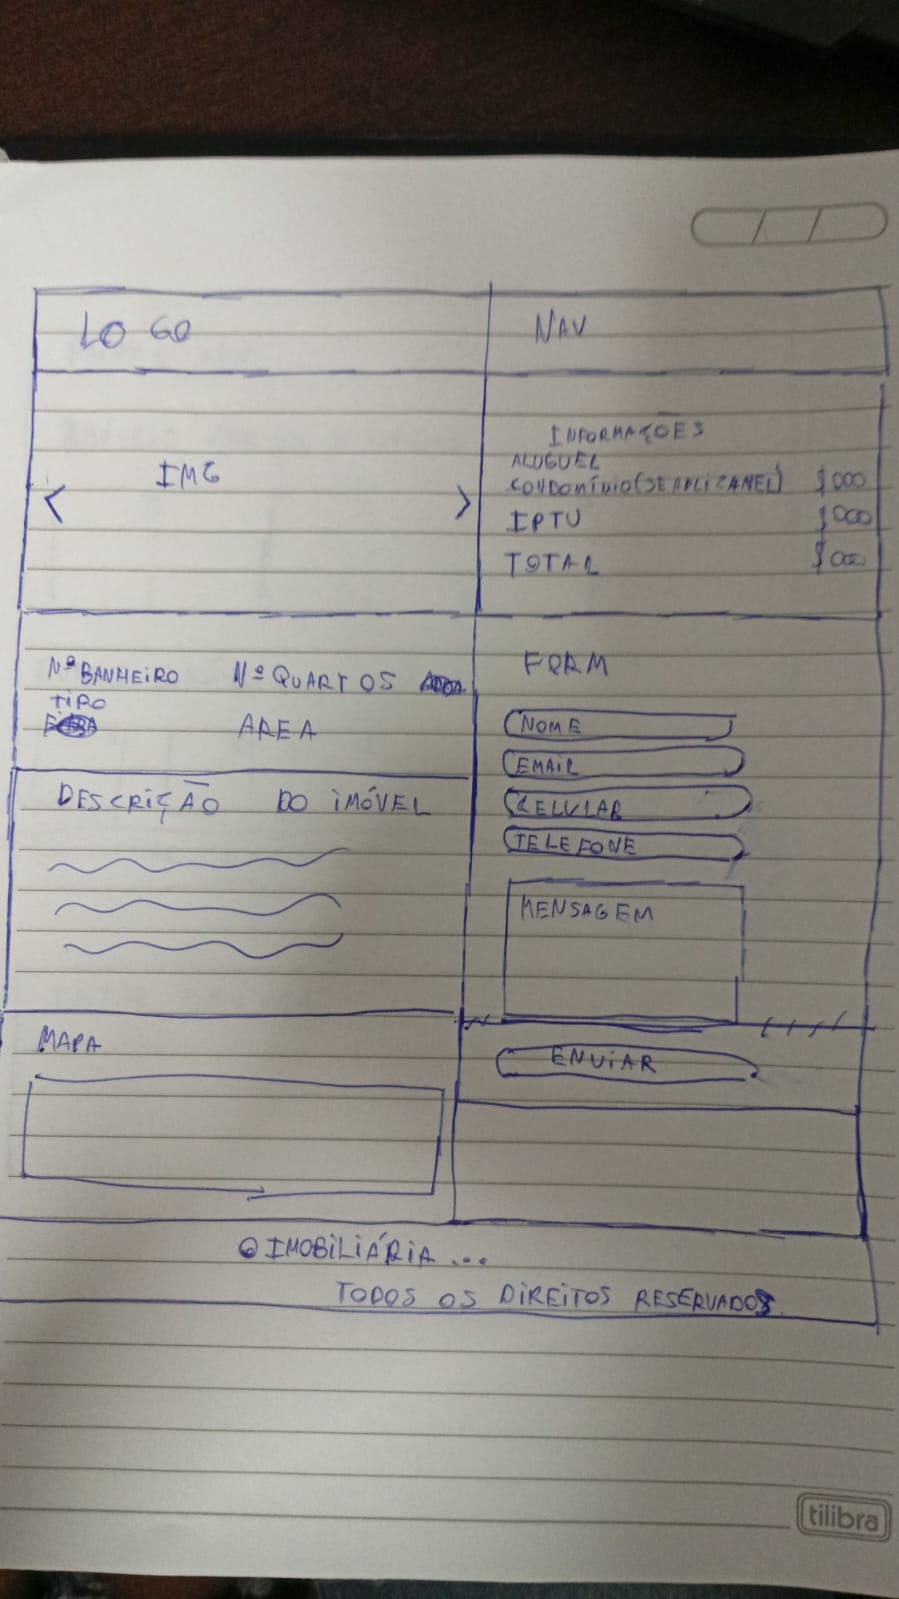 LOGO
NAV
IMG
< >
INFORMAÇÕES
ALUGUEL
CONDOMÍNIO (SE APLICANEL) $000
IPTU $000
TOTAL $000
Nº BANHEIRO Nº QUARTOS
TIPO
AREA
DESCRIÇÃO DO IMÓVEL
MAPA
FORM
NOME
EMAIL
CELULAR
TELEFONE
MENSAGEM
ENVIAR
© IMOBILIÁRIA ...
TODOS OS DIREITOS RESERVADOS
tilibra